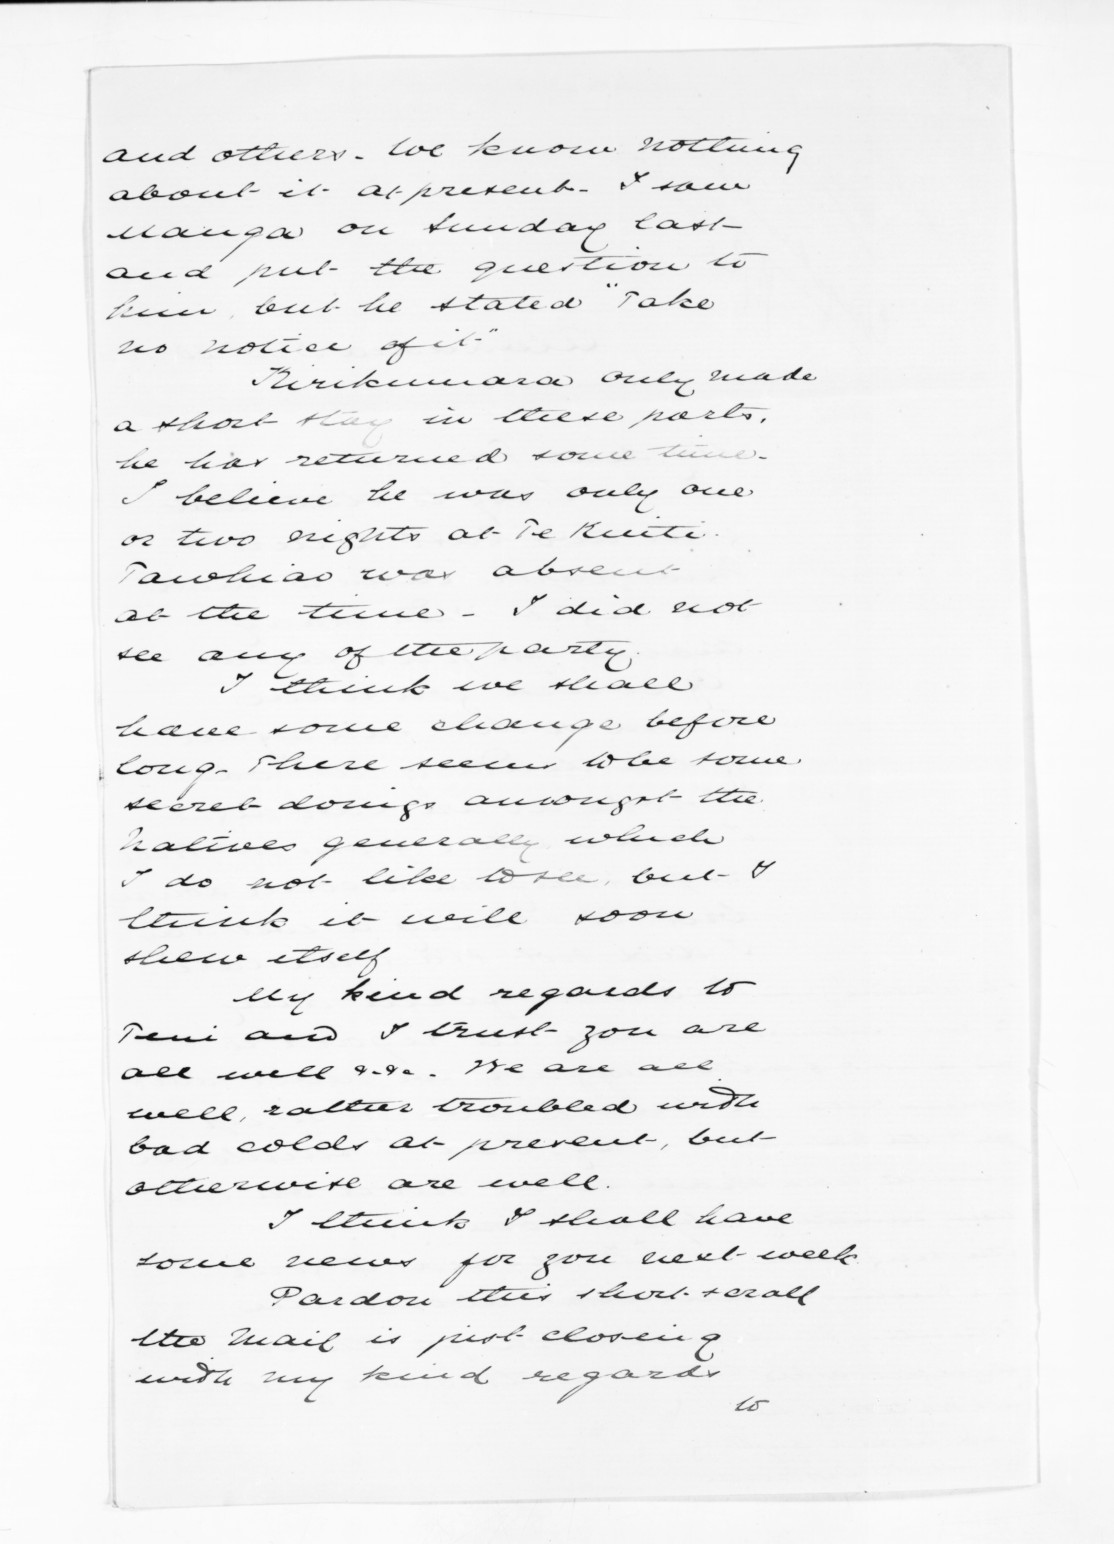 and others. We know nothing
about it at present. I saw
Manga on Sunday last
and put the question to
him, but he stated "Take
no notice of it"
Kirikumara only made
a short stay in these parts,
he has returned some time.
I believe he was only one
or two nights at Te Kuiti.
Tawhiao was absent
at the time - I did not
see any of the party.
I think we shall
have some change before
long. There seems to be some
secret doings amongst the
Natives generally which
I do not like to see, but I
think it will soon
shew itself
My kind regards to
Teni and I trust you are
all well &c &c. We are all
well, rather troubled with
bad colds at present, but
otherwise are well.
I think I shall have
some news for you next week
Pardon this short scrall
the Mail is just closeing
with my kind regards
to